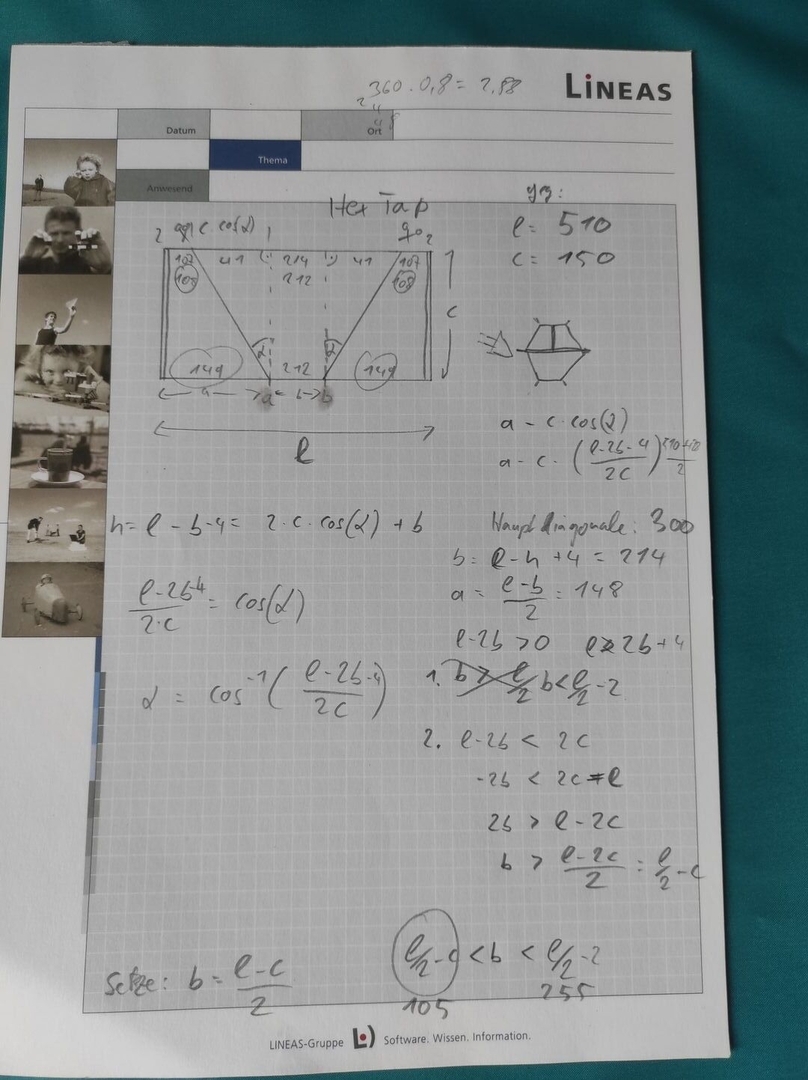 360 · 0,8 = 2,88
LiNEAS
2 4
4 8
Datum
Ort
Thema
Anwesend
Hex Tap
l = 510
c = 150
2 c · cos(α) 1 90 2
107 41 214 41 107
108 212 108
c
α α
149 212 149
a a b b
l
a - c · cos(α)
a - c · ((l-2b-4)/2c)
h = l - b - 4 = 2 · c · cos(α) + b
Hauptdiagonale: 300
b = l - h + 4 = 214
(l-2b-4)/(2·c) = cos(α)
a = (l-b)/2 = 148
l-2b > 0 l > 2b+4
α = cos⁻¹((l-2b-4)/2c)
1. b > l/2 b < l/2 - 2
2. l-2b < 2c
-2b < 2c - l
2b > l - 2c
b > (l-2c)/2 = l/2 - c
Setze: b = (l-c)/2
l/2 - c < b < l/2 - 2
105 255
LINEAS-Gruppe L) Software. Wissen. Information.